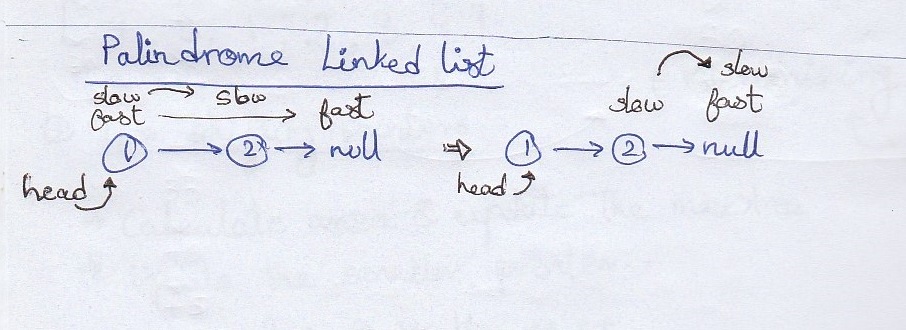 Palindrome Linked list
slow → slow
fast → fast
① → ② → null
head
slow
slow fast
⇒ ① → ② → null
head